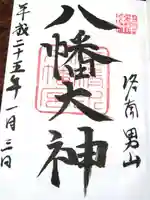 洛南男山
八幡大神
平成二十五年一月三日